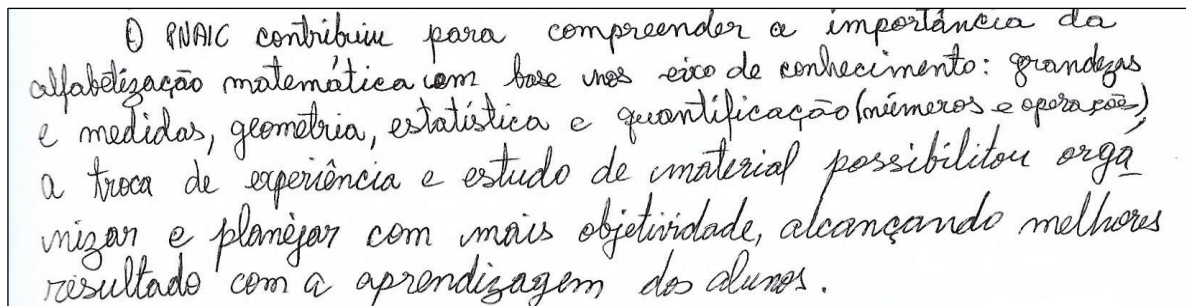 O PNAIC contribuiu para compreender a importância da
alfabetização matemática com base nos eixo de conhecimento: grandezas
e medidas, geometria, estatística e quantificação (números e operações),
a troca de experiência e estudo de material possibilitou orga
nizar e planejar com mais objetividade, alcançando melhores
resultado com a aprendizagem dos alunos.